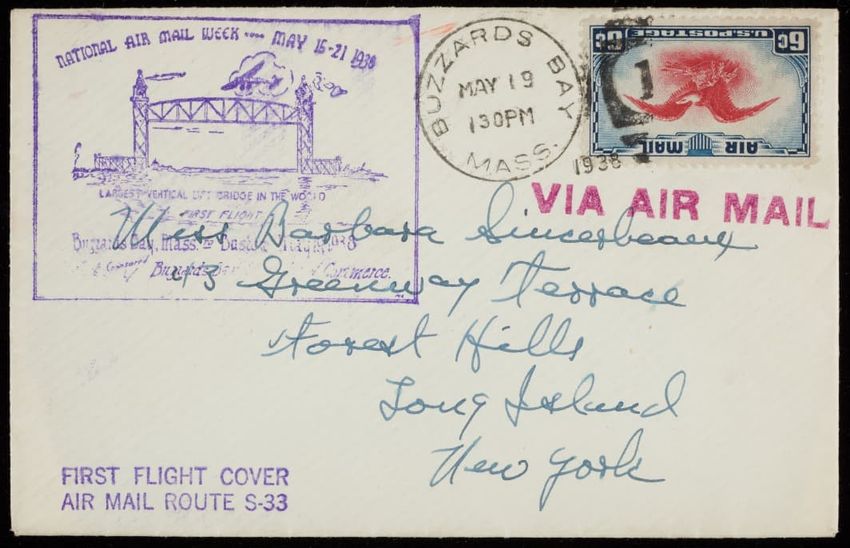 NATIONAL AIR MAIL WEEK .... MAY 15-21 1938
LARGEST VERTICAL LIFT BRIDGE IN THE WORLD
FIRST FLIGHT
Buzzards Bay, Mass. to Boston 1938
Buzzards Commerce.
BUZZARDS BAY
MAY 19
130PM
MASS.
1938
1
6¢ U.S. POSTAGE 6¢
AIR MAIL
VIA AIR MAIL
Miss Barbara Sincerbeaux
93 Greenway Terrace
Forest Hills
Long Island
New York
FIRST FLIGHT COVER
AIR MAIL ROUTE S-33